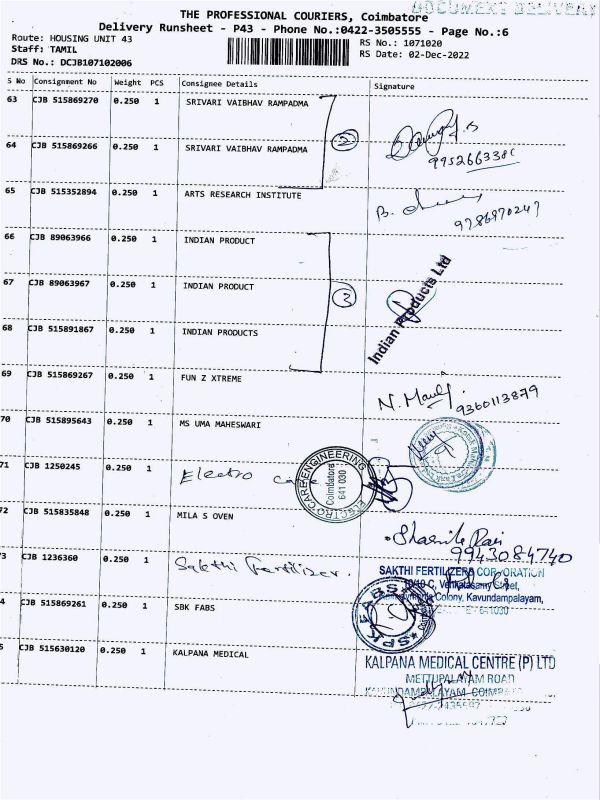 DOCUMENT DELIVERY
THE PROFESSIONAL COURIERS, Coimbatore
Delivery Runsheet - P43 - Phone No.:0422-3505555 - Page No.:6
Route: HOUSING UNIT 43
Staff: TAMIL
DRS No.: DCJB107102006
RS No.: 1071020
RS Date: 02-Dec-2022
S No Consignment No Weight PCS Consignee Details Signature
63 CJB 515869270 0.250 1 SRIVARI VAIBHAV RAMPADMA
2
64 CJB 515869266 0.250 1 SRIVARI VAIBHAV RAMPADMA
65 CJB 515352894 0.250 1 ARTS RESEARCH INSTITUTE
B.
9786970247
66 CJB 89063966 0.250 1 INDIAN PRODUCT
67 CJB 89063967 0.250 1 INDIAN PRODUCT
3
Indian Products Ltd
68 CJB 515891867 0.250 1 INDIAN PRODUCTS
69 CJB 515869267 0.250 1 FUN Z XTREME
N.
9360113879
70 CJB 515895643 0.250 1 MS UMA MAHESWARI
71 CJB 1250245 0.250 1 Electro care
ELECTRO CARE ENGINEERING
Coimbatore
641 030
72 CJB 515835848 0.250 1 MILA S OVEN
9943084740
3 CJB 1236360 0.250 1 Sakthi Fertilizer.
SAKTHI FERTILIZERS CORPORATION
10/10-C, Venkatasamy Street,
Colony, Kavundampalayam,
641030
4 CJB 515869261 0.250 1 SBK FABS
FABS
5 CJB 515630120 0.250 1 KALPANA MEDICAL
KALPANA MEDICAL CENTRE (P) LTD
METTUPALAYAM ROAD
KAVUNDAMPALAYAM COIMBATORE